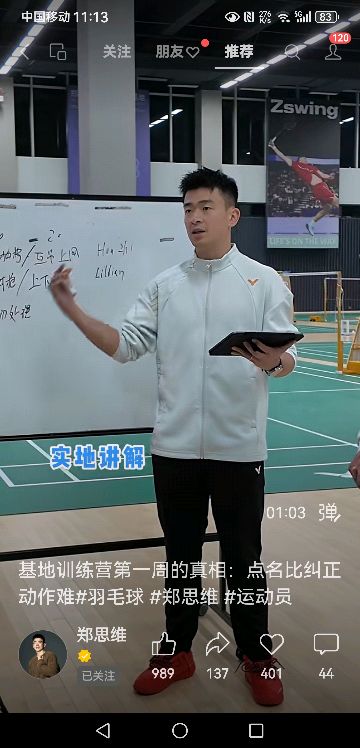 中国移动 11:13
276 K/s 5G 83
关注 朋友 推荐
120
Zswing
LIFE'S ON THE WAY
Lillian
实地讲解
01:03 弹
基地训练营第一周的真相：点名比纠正
动作难#羽毛球 #郑思维 #运动员
郑思维
已关注
989 137 401 44